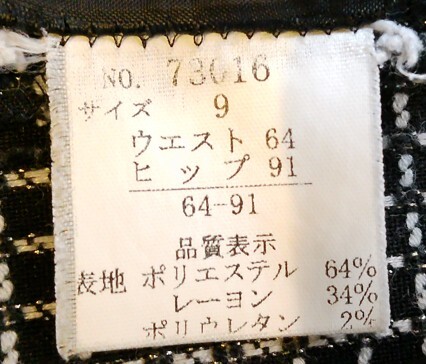 NO. 73016
サイズ 9
ウエスト 64
ヒップ 91
64-91
品質表示
表地 ポリエステル 64%
レーヨン 34%
ポリウレタン 2%